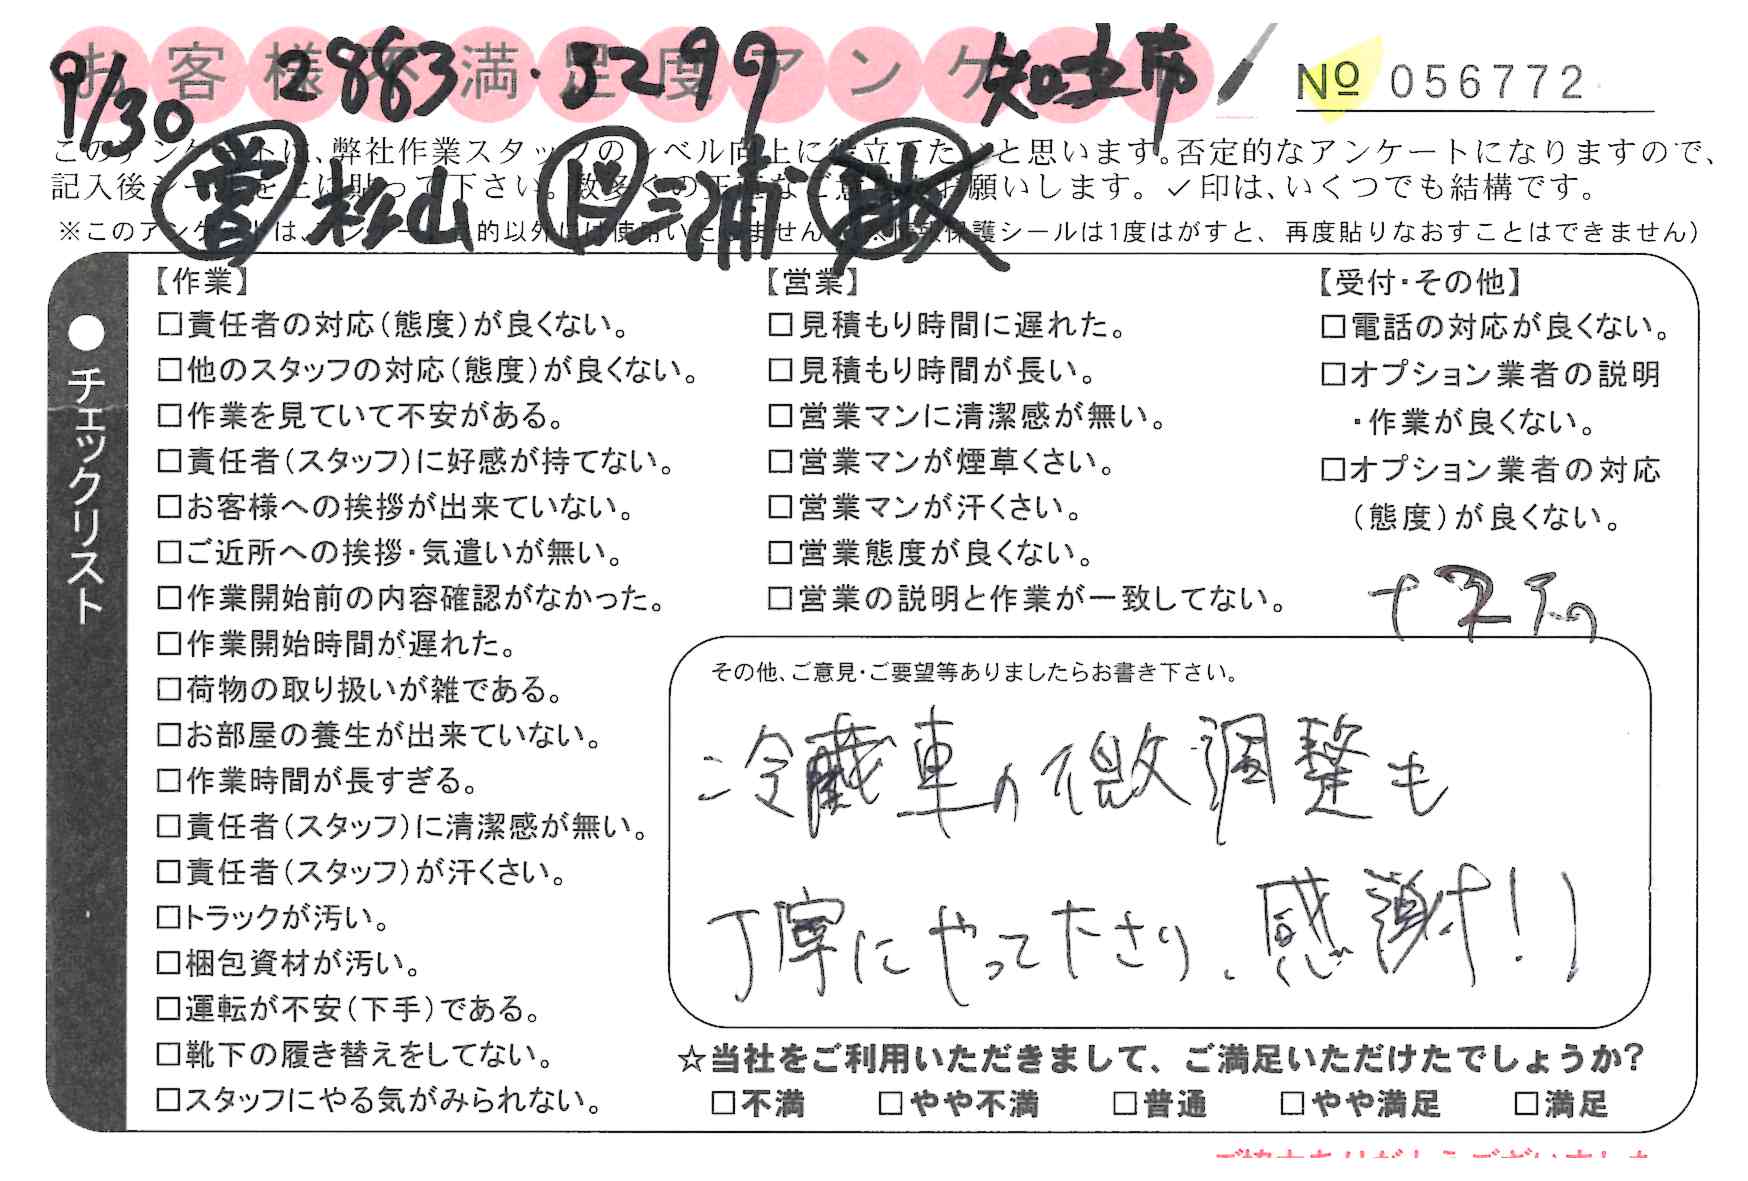 お客様不満足度アンケート
9/30 2883・5299 知立市
No 056772
このアンケートは、弊社作業スタッフのレベル向上に役立てたいと思います。否定的なアンケートになりますので、
記入後シールを上に貼って下さい。数多くの正直なご意見をお願いします。✓印は、いくつでも結構です。
営 杉山 ド 三浦
※このアンケートは、アンケート目的以外には使用いたしません(※情報保護シールは1度はがすと、再度貼りなおすことはできません)
●チェックリスト
【作業】
□責任者の対応(態度)が良くない。
□他のスタッフの対応(態度)が良くない。
□作業を見ていて不安がある。
□責任者(スタッフ)に好感が持てない。
□お客様への挨拶が出来ていない。
□ご近所への挨拶・気遣いが無い。
□作業開始前の内容確認がなかった。
□作業開始時間が遅れた。
□荷物の取り扱いが雑である。
□お部屋の養生が出来ていない。
□作業時間が長すぎる。
□責任者(スタッフ)に清潔感が無い。
□責任者(スタッフ)が汗くさい。
□トラックが汚い。
□梱包資材が汚い。
□運転が不安(下手)である。
□靴下の履き替えをしてない。
□スタッフにやる気がみられない。
【営業】
□見積もり時間に遅れた。
□見積もり時間が長い。
□営業マンに清潔感が無い。
□営業マンが煙草くさい。
□営業マンが汗くさい。
□営業態度が良くない。
□営業の説明と作業が一致してない。
【受付・その他】
□電話の対応が良くない。
□オプション業者の説明
・作業が良くない。
□オプション業者の対応
(態度)が良くない。
その他、ご意見・ご要望等ありましたらお書き下さい。
冷蔵車の微調整も
丁寧にやって下さり、感謝!!
☆当社をご利用いただきまして、ご満足いただけたでしょうか?
□不満 □やや不満 □普通 □やや満足 □満足
ご協力ありがとうございました